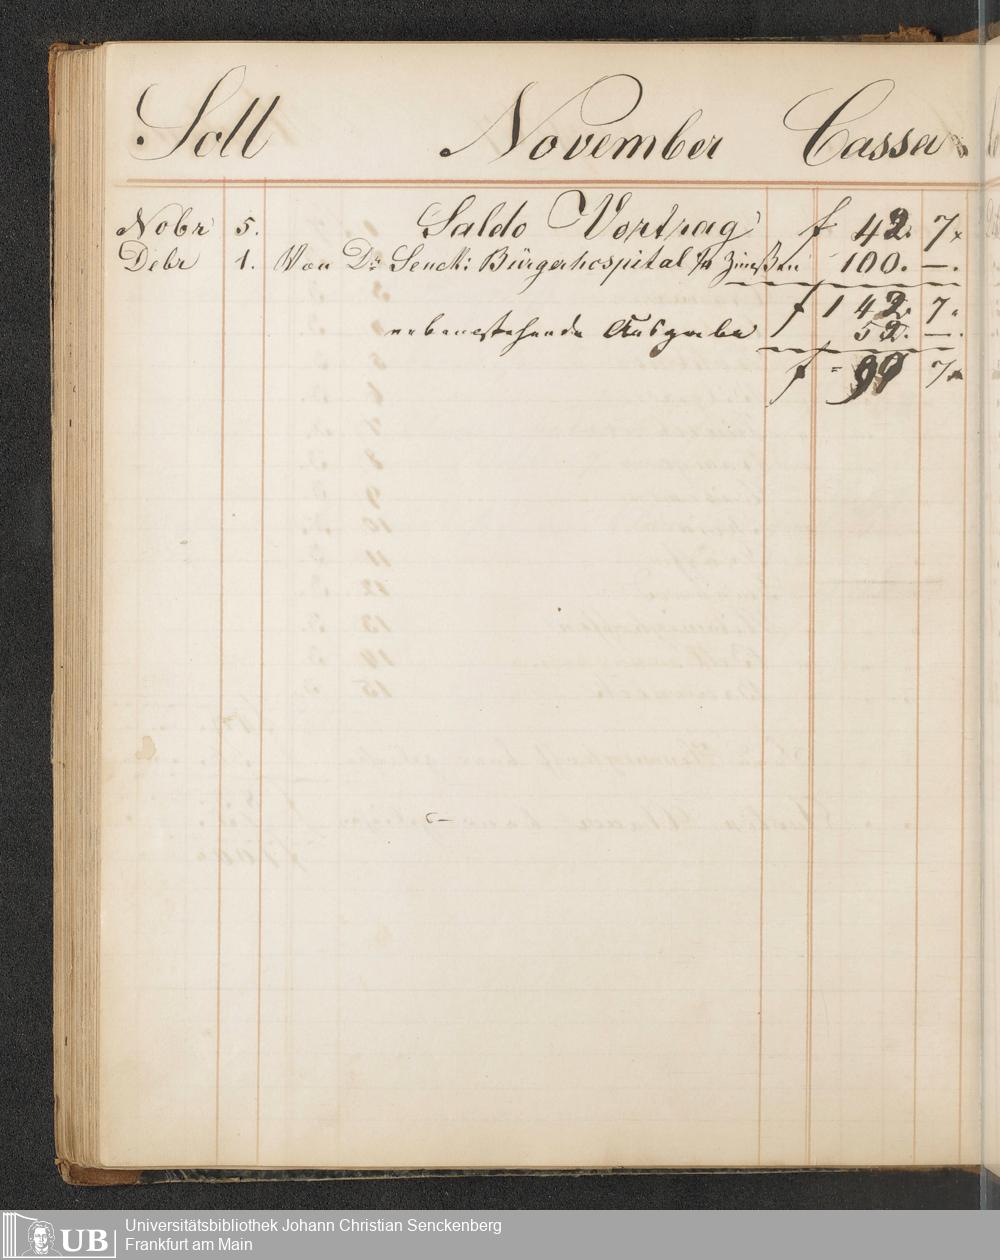 Soll November Cassa
Nobr 5. Saldo Vortrag f 42. 7x
Debr 1. Von Dr. Senck: Bürgerhospital 100. —.
f 142. 7.
nebenstehende Ausgabe 52. —.
f 7x
Universitätsbibliothek Johann Christian Senckenberg
Frankfurt am Main
UB